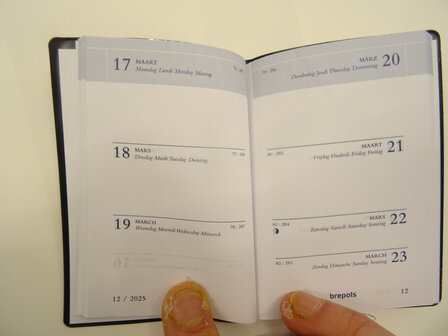 17 MAART
Maandag Lundi Monday Montag
76 - 289
18 MARS
Dinsdag Mardi Tuesday Dienstag
77 - 288
19 MARCH
Woensdag Mercredi Wednesday Mittwoch
78 - 287
12 / 2025
MÄRZ 20
79 - 286
Donderdag Jeudi Thursday Donnerstag
MAART 21
80 - 285
Vrijdag Vendredi Friday Freitag
MARS 22
81 - 284
Zaterdag Samedi Saturday Samstag
MARCH 23
82 - 283
Zondag Dimanche Sunday Sonntag
brepols 12